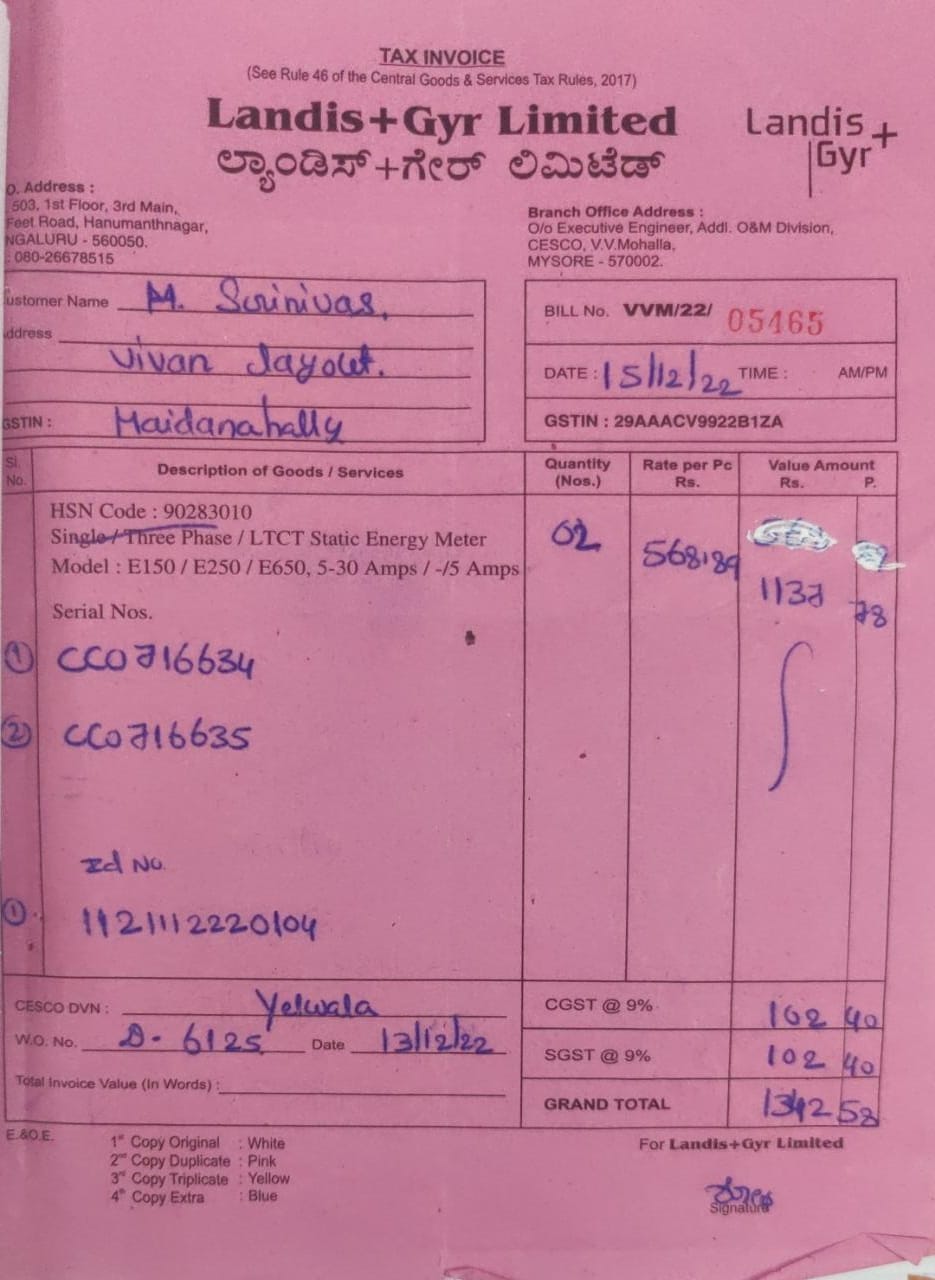 TAX INVOICE
(See Rule 46 of the Central Goods & Services Tax Rules, 2017)
Landis+Gyr Limited
ಲ್ಯಾಂಡಿಸ್+ಗೇರ್ ಲಿಮಿಟೆಡ್
Landis
Gyr+
o. Address :
503, 1st Floor, 3rd Main,
Feet Road, Hanumanthnagar,
NGALURU - 560050.
: 080-26678515
Branch Office Address :
O/o Executive Engineer, Addl. O&M Division,
CESCO, V.V.Mohalla,
MYSORE - 570002.
ustomer Name M. Srinivas,
ddress
Vivan Layout.
GSTIN : Maidanahally
BILL No. VVM/22/ 05465
DATE : 15/12/22 TIME : AM/PM
GSTIN : 29AAACV9922B1ZA
Sl. No. Description of Goods / Services Quantity (Nos.) Rate per Pc Rs. Value Amount Rs. P.
HSN Code : 90283010
Single / Three Phase / LTCT Static Energy Meter 02 568.89
Model : E150 / E250 / E650, 5-30 Amps / -/5 Amps 1137 78
Serial Nos.
1 CC0716634
2 CC0716635
Id No.
1 1121112220104
CESCO DVN : Yelwala
W.O. No. D- 6125 Date 13/12/22
Total Invoice Value (In Words) :
CGST @ 9% 102 40
SGST @ 9% 102 40
GRAND TOTAL 1342 58
E.&O.E.
1st Copy Original : White
2nd Copy Duplicate : Pink
3rd Copy Triplicate : Yellow
4th Copy Extra : Blue
For Landis+Gyr Limited
Signature